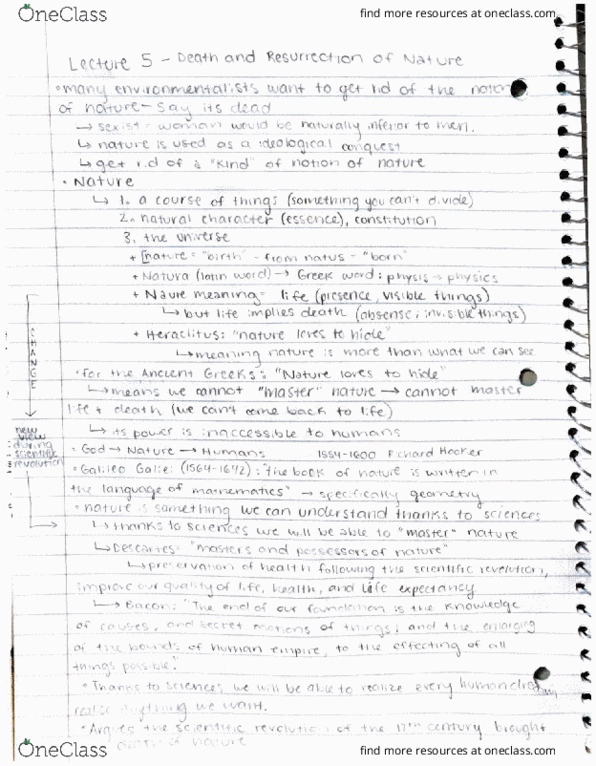 OneClass
find more resources at oneclass.com
Lecture 5 - Death and Resurrection of Nature
• many environmentalists want to get rid of the notion
of nature - say its dead
→ sexist - woman would be naturally inferior to men.
↳ nature is used as a ideological conquest
↳ get rid of a "kind" of notion of nature
• Nature
↳ 1. a course of things (something you can't divide)
2. natural character (essence), constitution
3. the universe
+ nature = "birth" - from natus - "born"
+ Natura (latin word) → Greek word: physis → physics
+ Naure meaning = life (presence, visible things)
↳ but life implies death (absense; invisible things)
+ Heraclitus: "nature loves to hide"
↳ meaning nature is more than what we can see
CHANGE
• for the Ancient Greeks: "Nature loves to hide"
↳ means we cannot "master" nature → cannot master
life + death (we can't come back to life)
↳ its power is inaccessible to humans
new view during scientific revolution
• God → Nature → Humans 1554-1600 Richard Hooker
• Galileo Galilei (1564-1642): "the book of nature is written in
the language of mathematics" → specifically geometry
• nature is something we can understand thanks to sciences
↳ thanks to sciences we will be able to "master" nature
↳ Descartes: "masters and possessors of nature"
↳ preservation of health following the scientific revolution,
improve our quality of life, health, and life expectancy
↳ Bacon: "The end of our foundation is the knowledge
of causes, and secret motions of things; and the enlarging
of the bounds of human empire, to the effecting of all
things possible."
• Thanks to sciences we will be able to realize every human
anything we want.
• Argues the scientific revolution of the 17th century brought
death of nature
OneClass
find more resources at oneclass.com